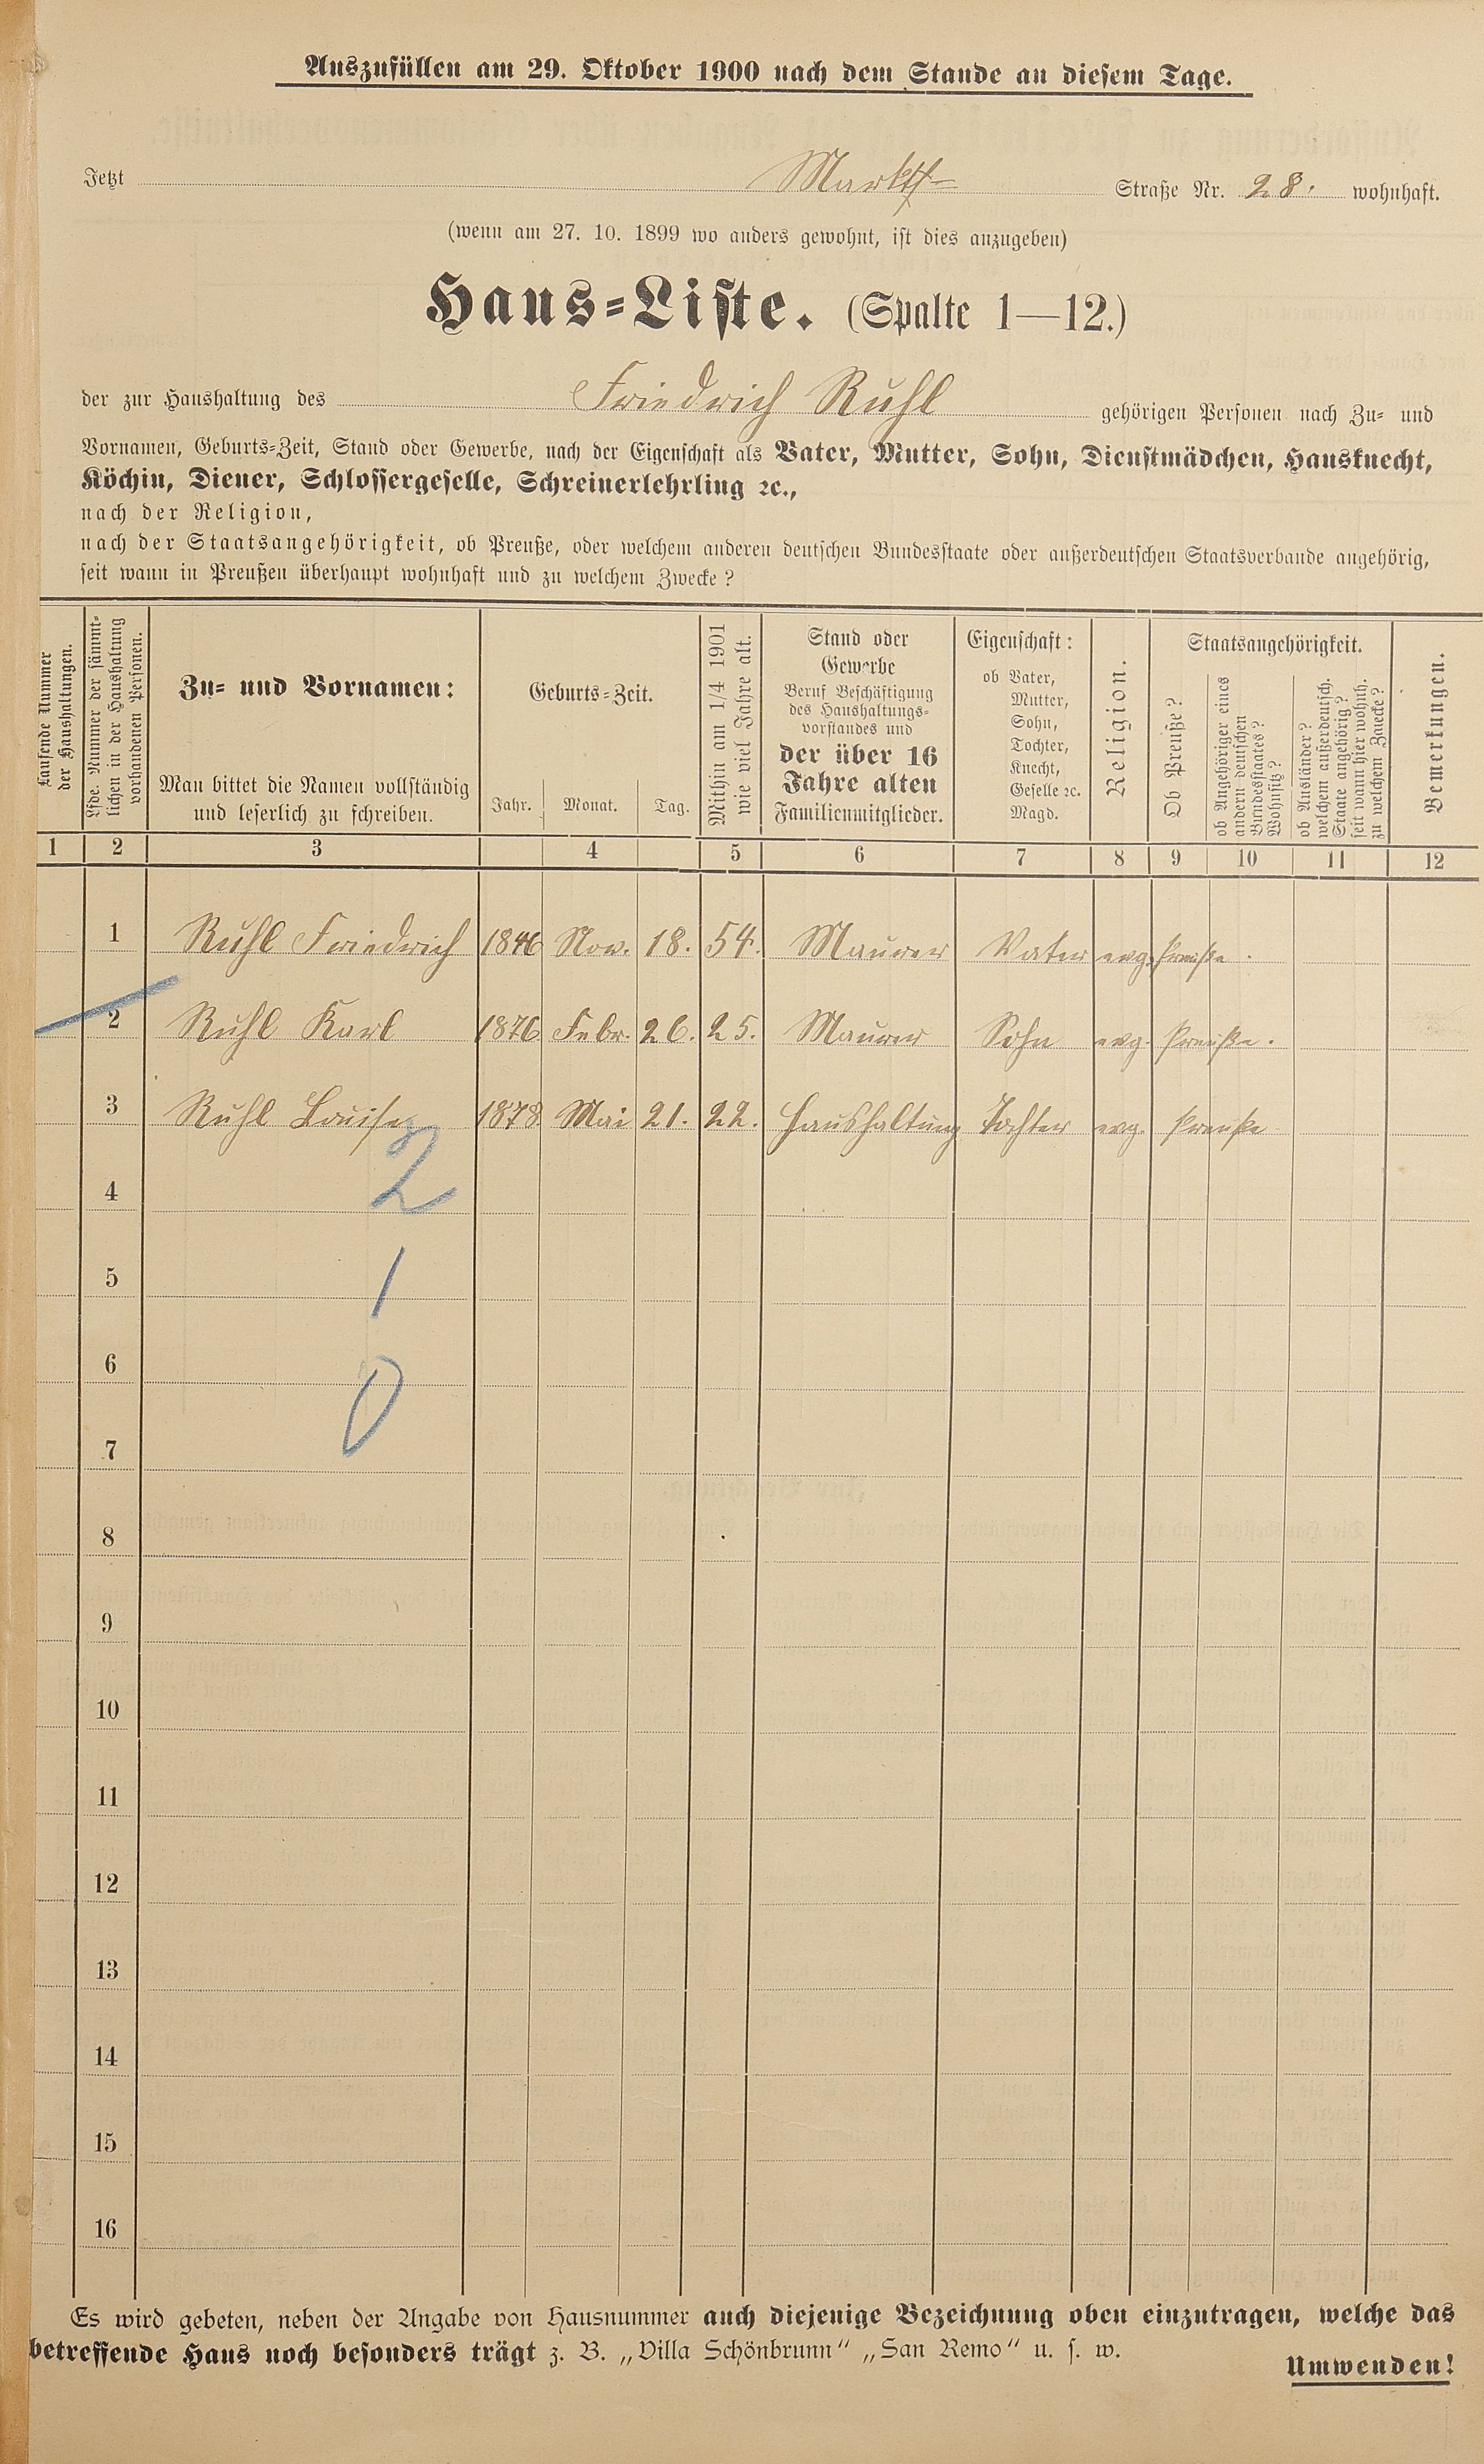 Auszufüllen am 29. Oktober 1900 nach dem Stande an diesem Tage.
Jetzt Markt- Straße Nr. 28. wohnhaft.
(wenn am 27. 10. 1899 wo anders gewohnt, ist dies anzugeben)
Haus-Liste. (Spalte 1—12.)
der zur Haushaltung des Friedrich Ruhl gehörigen Personen nach Zu- und
Vornamen, Geburts-Zeit, Stand oder Gewerbe, nach der Eigenschaft als Vater, Mutter, Sohn, Dienstmädchen, Hausknecht,
Köchin, Diener, Schlossergeselle, Schreinerlehrling ꝛc.,
nach der Religion,
nach der Staatsangehörigkeit, ob Preuße, oder welchem anderen deutschen Bundesstaate oder außerdeutschen Staatsverbande angehörig,
seit wann in Preußen überhaupt wohnhaft und zu welchem Zwecke?
Laufende Nummer
der Haushaltungen.
Lfde. Nummer der sämmt-
lichen in der Haushaltung
vorhandenen Personen.
Zu- und Vornamen:
Man bittet die Namen vollständig
und leserlich zu schreiben.
Geburts-Zeit.
Jahr. Monat. Tag.
Mithin am 1/4 1901
wie viel Jahre alt.
Stand oder
Gewerbe
Beruf Beschäftigung
des Haushaltungs-
vorstandes und
der über 16
Jahre alten
Familienmitglieder.
Eigenschaft:
ob Vater,
Mutter,
Sohn,
Tochter,
Knecht,
Geselle ꝛc.
Magd.
Religion.
Staatsangehörigkeit.
Ob Preuße?
ob Angehöriger eines
andern deutschen
Bundesstaates?
Wohnsitz?
ob Ausländer?
welchem außerdeutsch.
Staate angehörig?
seit wann hier wohnh.
zu welchem Zwecke?
Bemerkungen.
1 2 3 4 5 6 7 8 9 10 11 12
1 Ruhl Friedrich 1846 Nov. 18. 54. Maurer Vater evg. Preuße.
2 Ruhl Karl 1876 Febr. 26. 25. Maurer Sohn evg. Preuße.
3 Ruhl Louise 1878 Mai 21. 22. Haushaltung Tochter evg. Preuße
4 2
5 1
6 0
7
8
9
10
11
12
13
14
15
16
Es wird gebeten, neben der Angabe von Hausnummer auch diejenige Bezeichnung oben einzutragen, welche das
betreffende Haus noch besonders trägt z. B. „Villa Schönbrunn“ „San Remo“ u. s. w.
Umwenden!